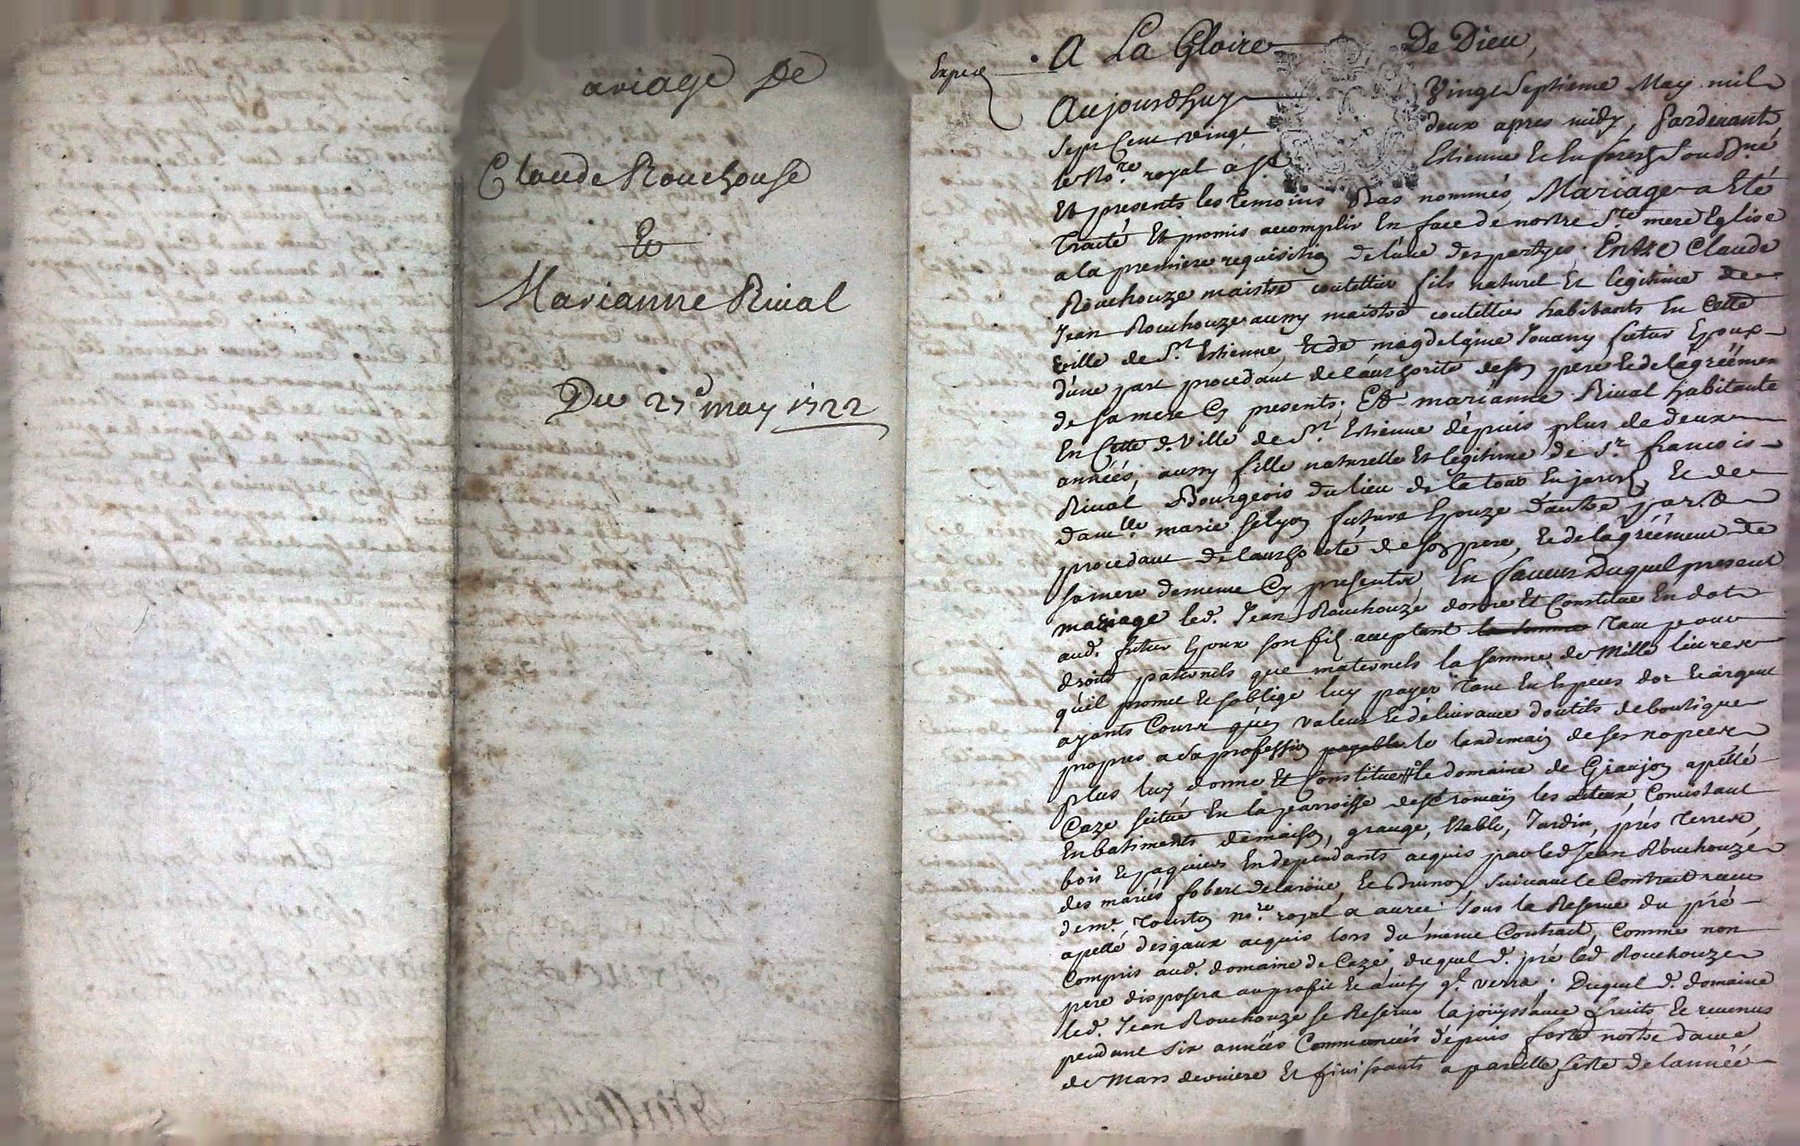 ariage De
Claude Rouchouse
Et
Marianne Riual
Du 27e may 1722
Expedié
A La Gloire De Dieu,
Aujourdhuy Vingt Septieme May mil
Sept Cent vingt deux apres midy, Pardevant
le No.re royal a St Estienne En forests Soubs.né
Et presents les temoins Bas nommés, Mariage a Eté
Traité Et promis accomplir En face de nostre Ste mere Eglise
a la premiere requisition de lune des partyes; Entre Claude
Rouchouze maistre coutellier fils naturel Et legitime de
Jean Rouchouze aussy maistre coutellier habitants En Cette
ville de St. Estienne, Et de magdelaine Jouany futur Epoux
d'une part procedant de l'authorité de son pere Et de lagréement
de sa mere Cy presents; Et marianne Riual habitante
En Cette d. Ville de St. Estienne dépuis plus de deux
années, aussy fille naturelle Et legitime de Sr. francois
Riual Bourgeois du lieu de la tour En jarest, Et de
dam.lle marie future Epouze dautre part
procedant de lauthorité de son pere, Et de lagréement de
sa mere demême Cy presents, En faueur Duquel present
mariage led. Jean Rouchouze donne Et Constitue En dot
aud. futur Epoux son fils acceptant tant pour
droits paternels que maternels la somme de Mille liures
quil promet Et soblige luy payer tant En Especes dor Et argent
ayants Cours quen valeur Et deliurance doutils de boutique
propres a sa profession payable le landemain de ses nopces
plus luy donne Et Constitue le domaine de Granjon apellé
Caze scitué En la parroisse de St romain les Consistant
En batiments de maison, grange, Etable, Jardin, prés terres,
bois Et paquiers En dependants acquis par led Jean Rouchouze
des mariés Et Brunon, Suiuant le Contrat recu
de me. no.re royal a aurec: Sous la Reserue du pré
apellé acquis lors du meme Contrat, Comme non
Compris aud. domaine de Caze, duquel d. pré led Rouchouze
pere disposera au profit Et ainsy ql verra; Duquel d. domaine
led. Jean Rouchouze se Reserue la jouyssance fruits Et reuenus
pendant six années Commencées dépuis feste nostre dame
de Mars derniere Et finissants a pareille feste de l'année